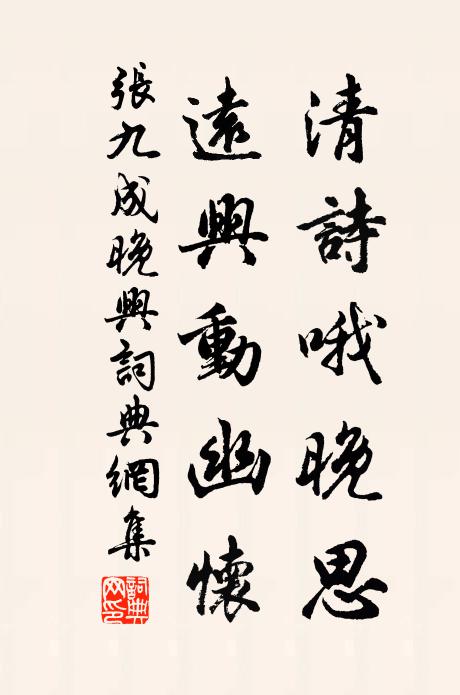 清詩哦晚思
遠興動幽懷
張九成晚興詞典網集
詞典网印